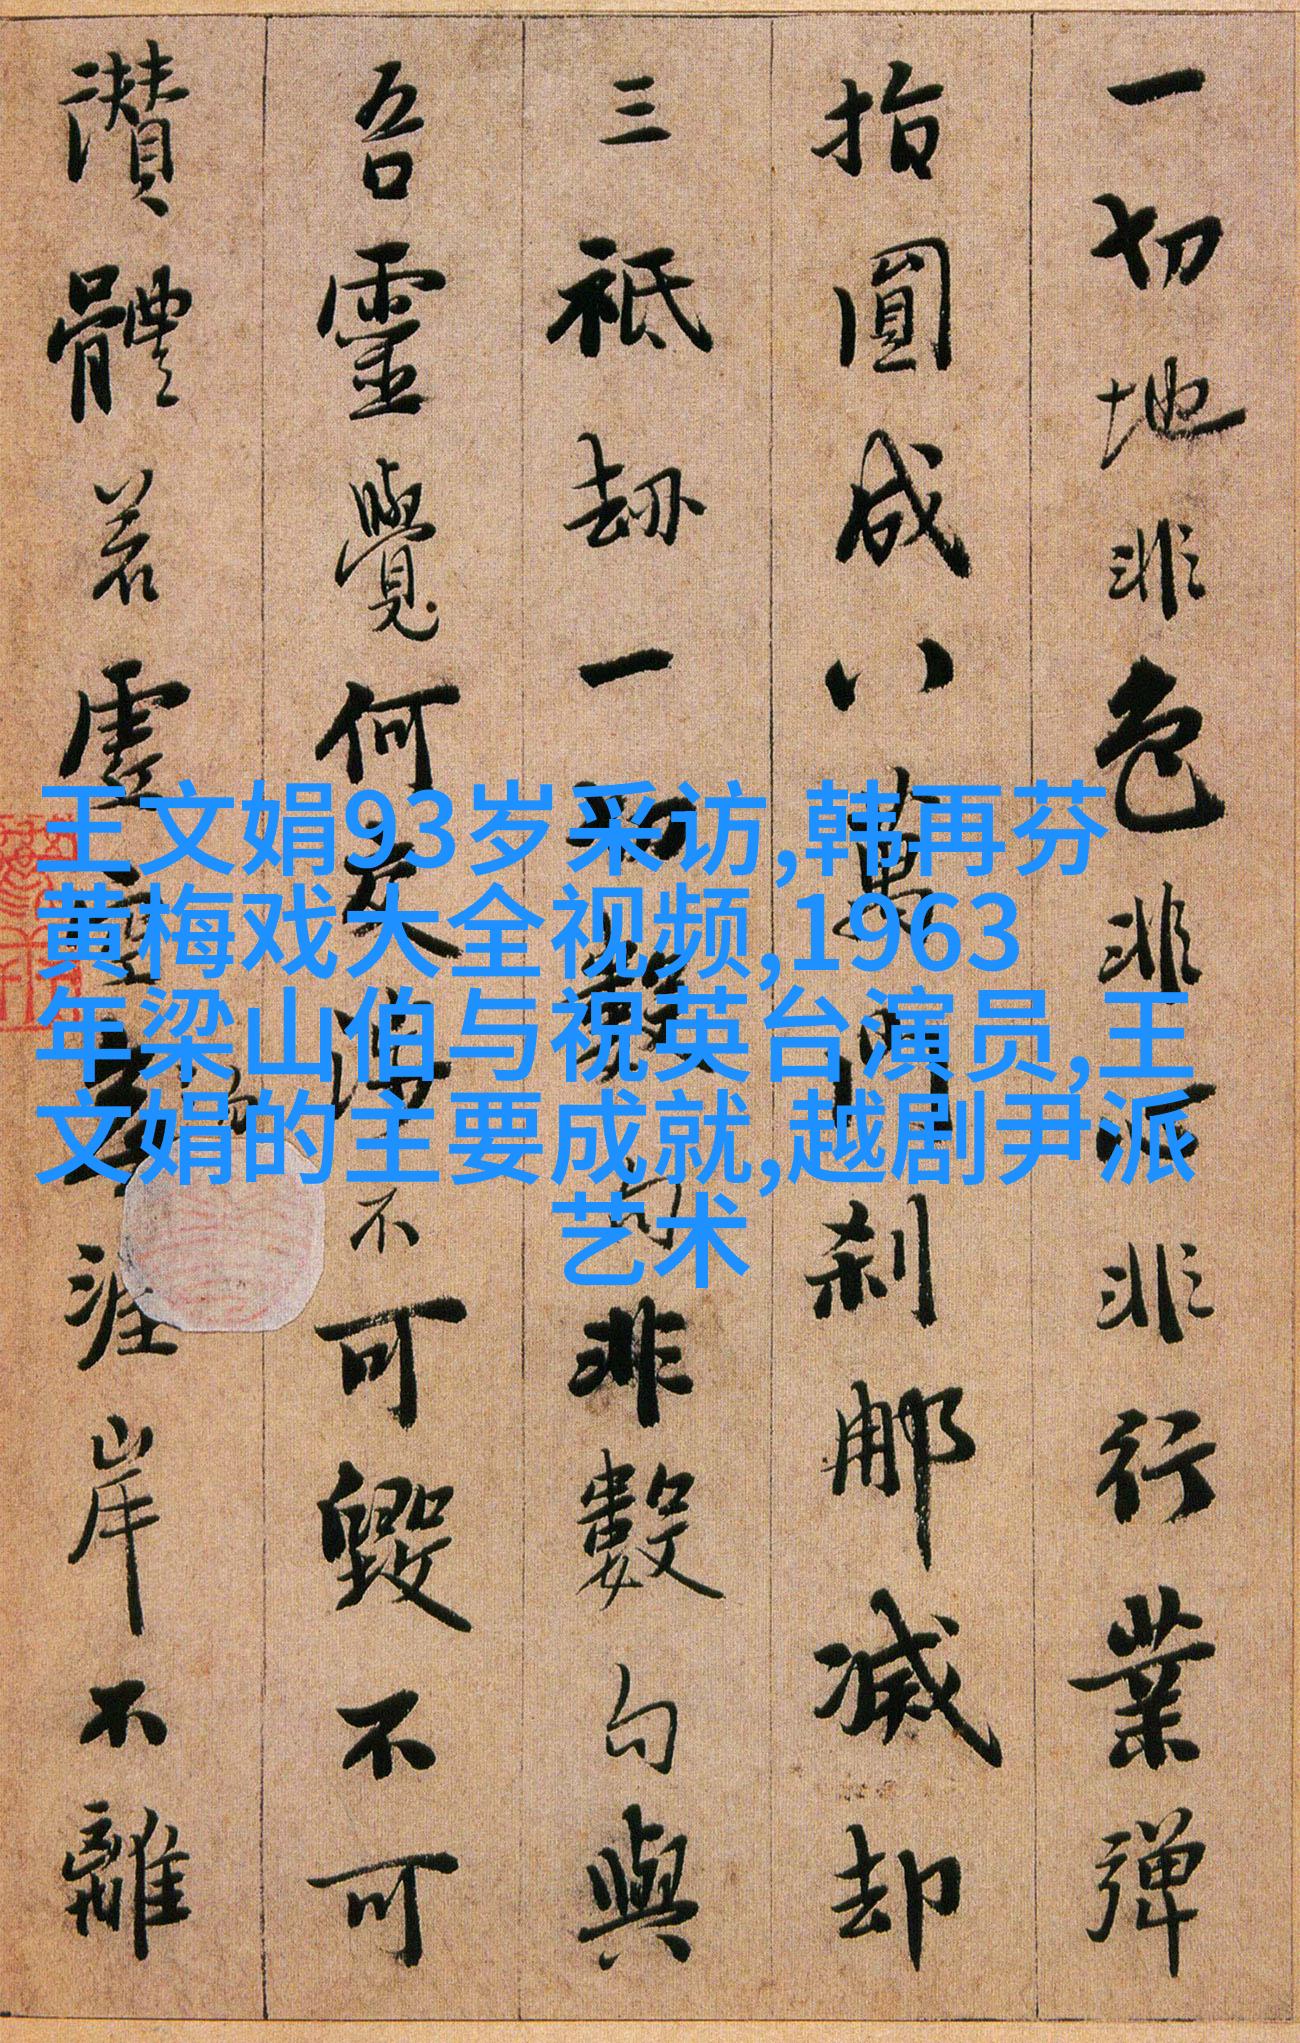 一切地非色非心非行業彈
指圓成八萬門刹那滅却
三祇劫一切數句非數句與
吾靈覺何交涉不可毀不可
讚體若虛空勿涯岸不離
王文娟93岁采访,韩再芬
黄梅戏大全视频,1963
年梁山伯与祝英台演员,王
文娟的主要成就,越剧尹派
艺术